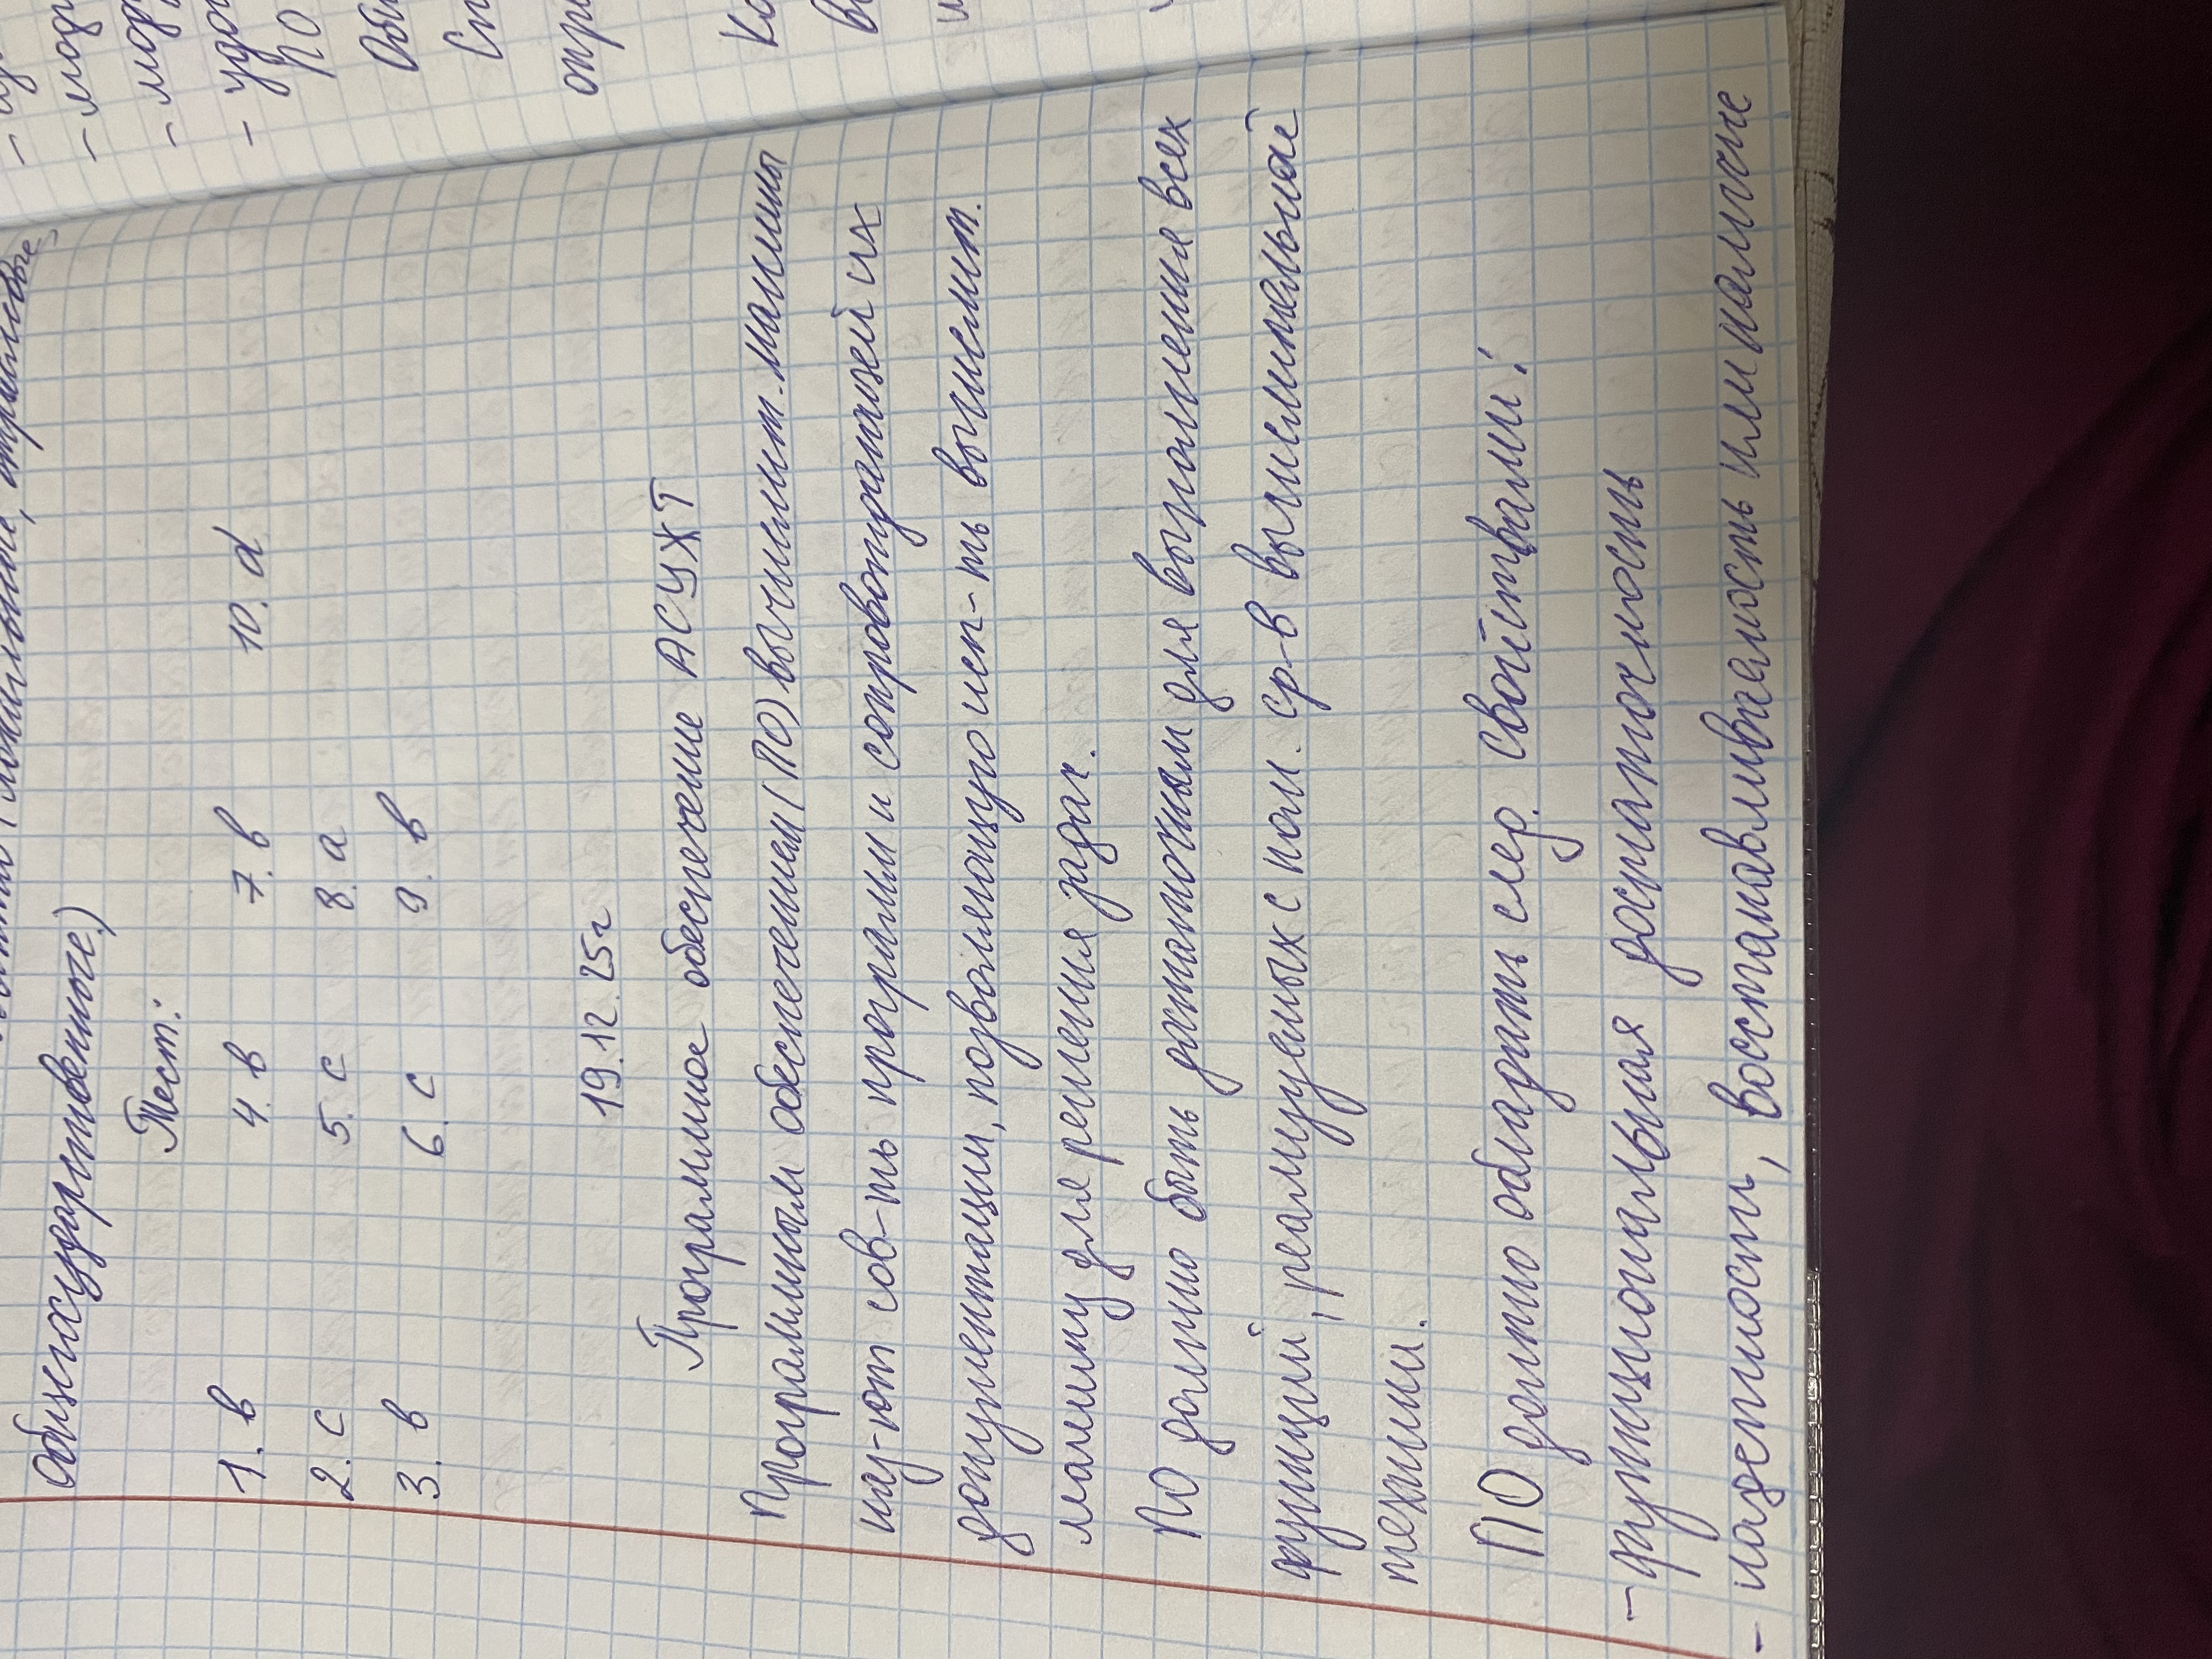 (локальные, отраслевые,
общегосударственные.)
Тест:
1. в 4. в 7. в 10. d
2. с 5. с 8. а
3. в 6. с 9. в
19.12.25г
Программное обеспечение АСУЖТ
Программным обеспечением (ПО) вычислит. машины
наз-ют сов-ть программ и сопровождающей их
документации, позволяющую исп-ть вычислит.
машину для решения задач.
ПО должно быть достаточным для выполнения всех
функций, реализуемых с пом. ср-в вычислительной
техники.
ПО должно обладать след. свойствами:
- функциональная достаточность
- надежность, восстанавливаемость или наличие
- мод
- мод
- удо
ПО
Сп
отра